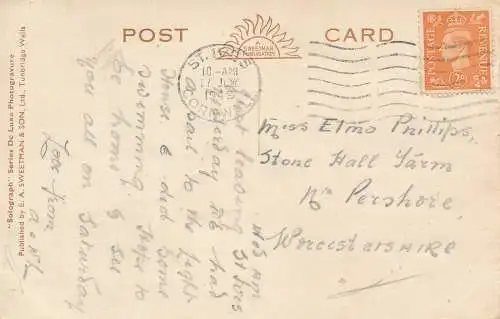 POST CARD
A SWEETMAN PUBLICATION
"Solograph" Series De Luxe Photogravure
Published by E. A. SWEETMAN & SON, Ltd., Tunbridge Wells
POSTAGE REVENUE
ST. IVES
10 - AM
CORNWALL
Wed AM
Just leaving St Ives
yesterday We had
a boat to the Light
House & did some
swimming. Hope to
be home & see
you all on Saturday
Love from
Miss Elma Phillips,
Stone Hall Farm
Nr Pershore,
WORCESTERSHIRE